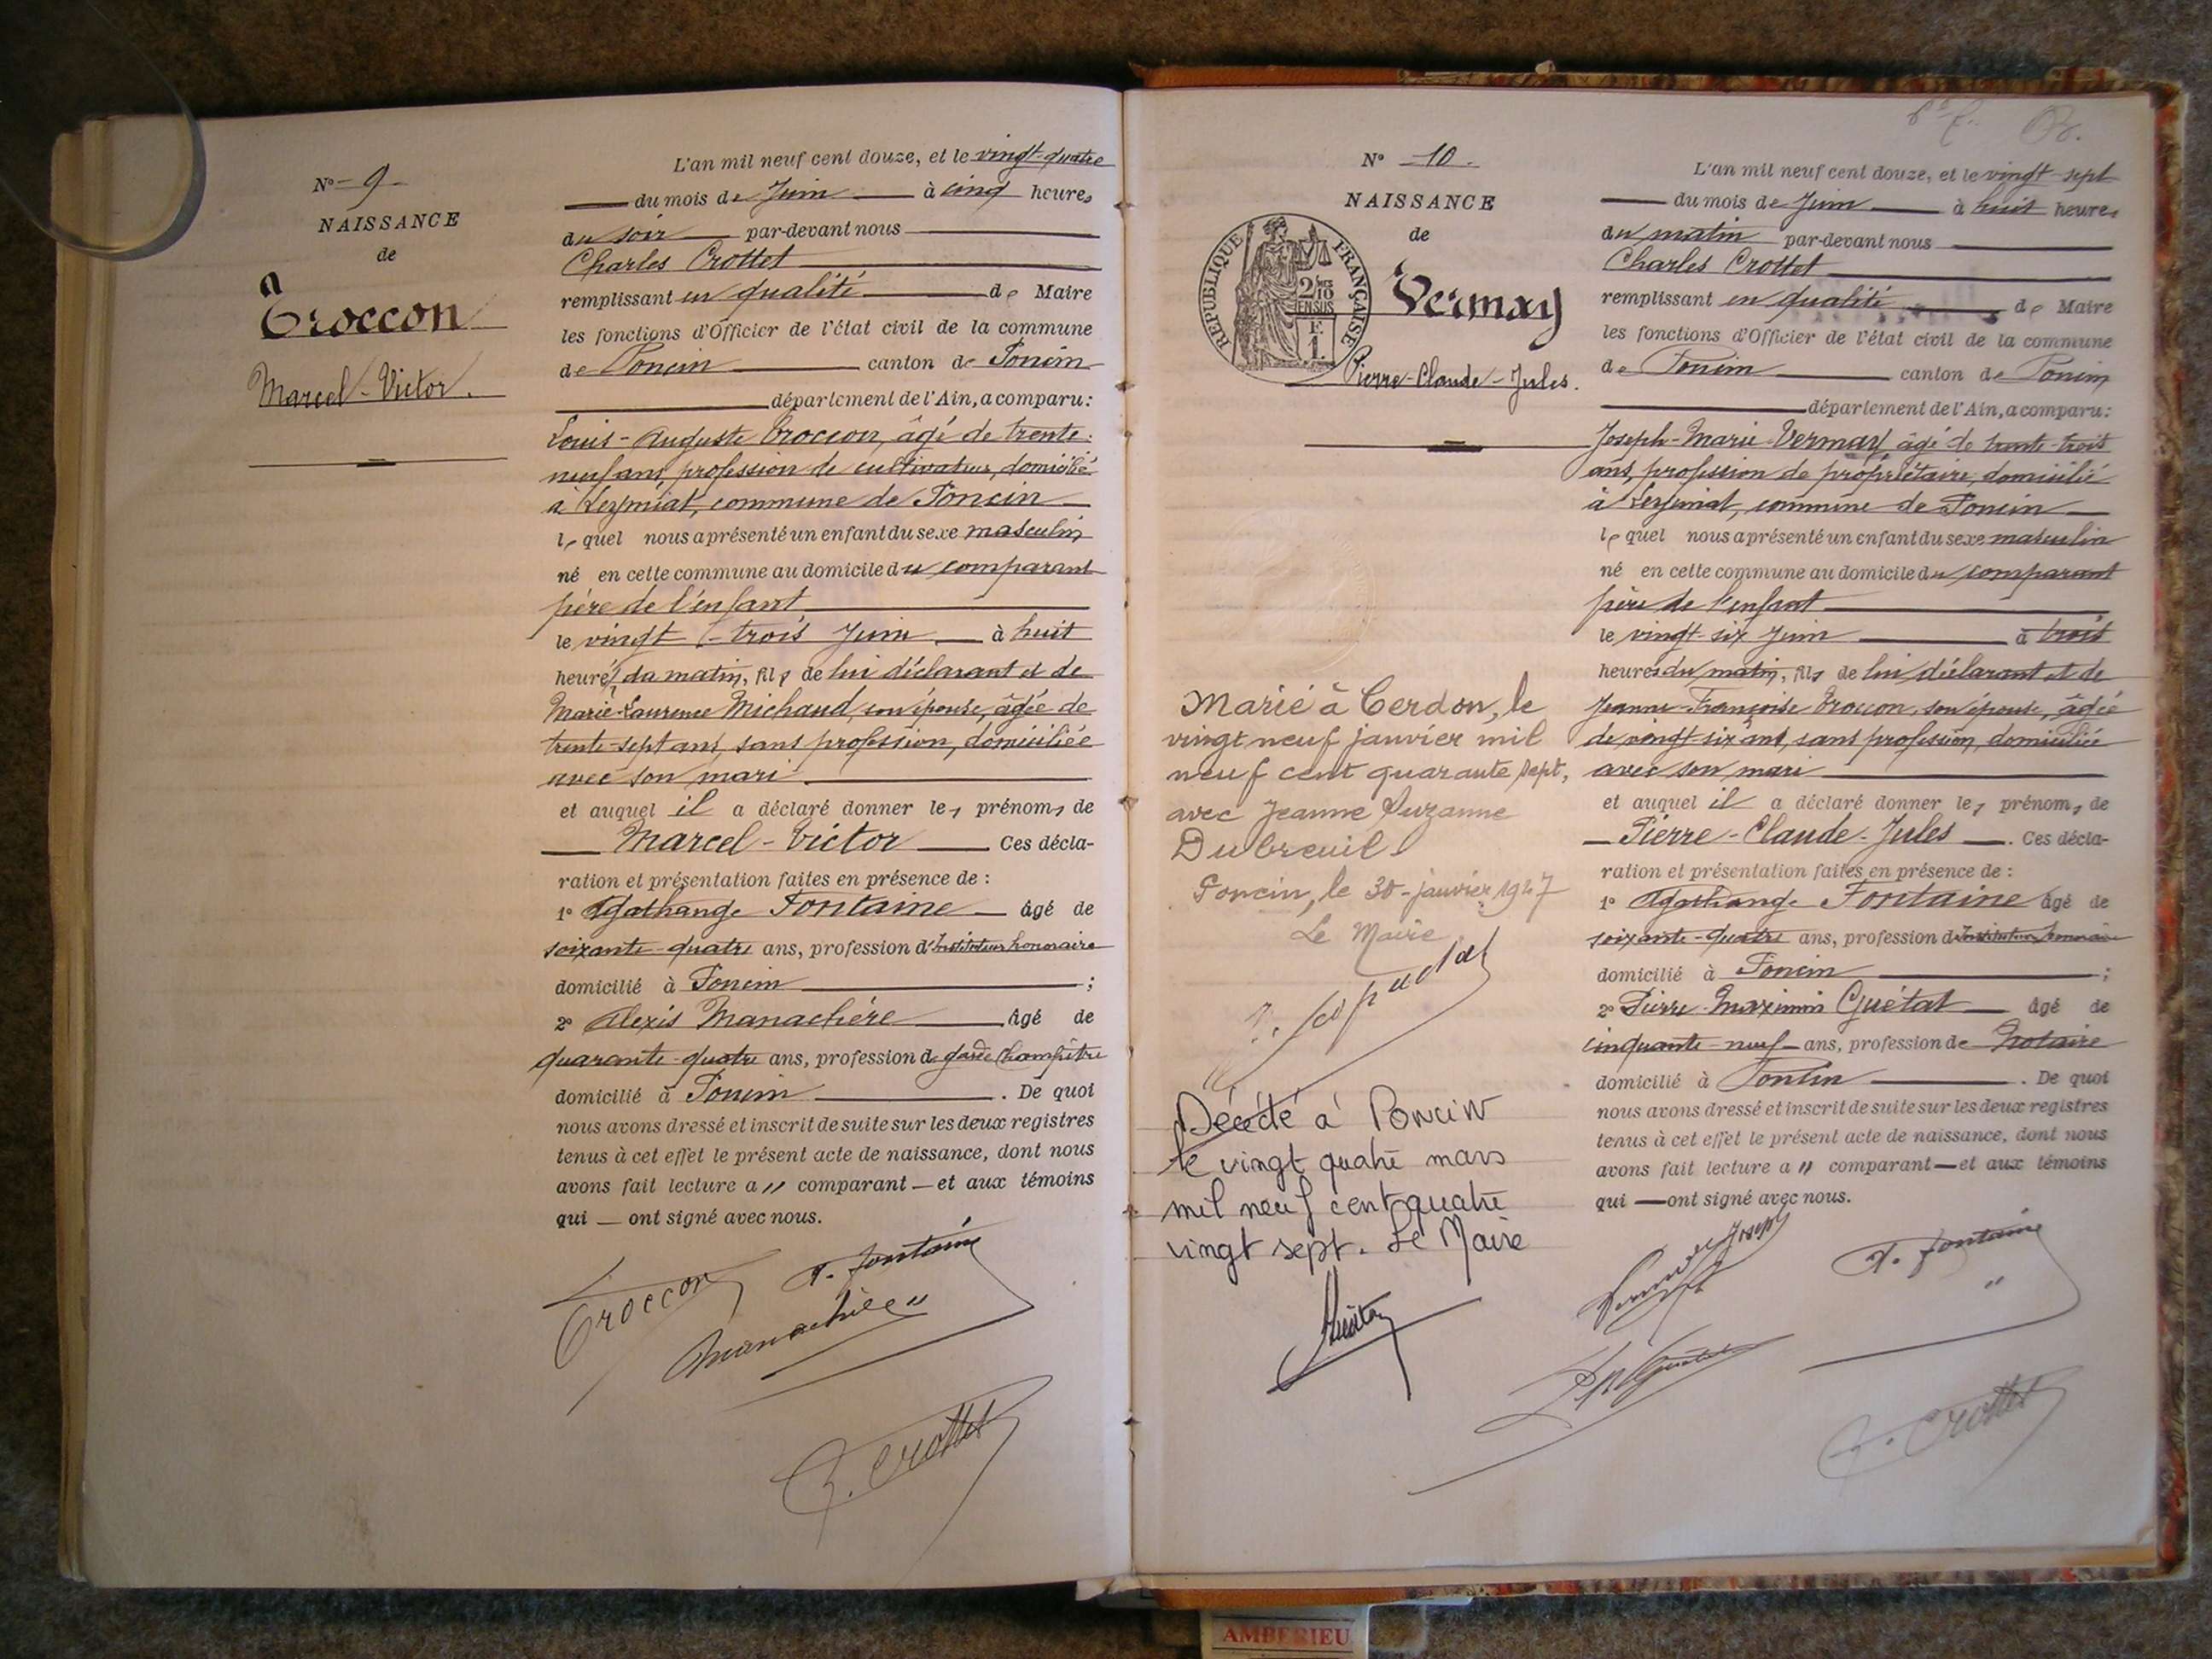 N° 9
NAISSANCE
de
Troccon
Marcel-Victor.
L'an mil neuf cent douze, et le vingt-quatre
du mois de Juin à cinq heures
du soir par-devant nous
Charles Crottet
remplissant en qualité de Maire
les fonctions d'Officier de l'état civil de la commune
de Poncin canton de Poncin
département de l'Ain, a comparu:
Louis-Auguste Troccon, âgé de trente-
neuf ans, profession de cultivateur, domicilié
à Leymiat, commune de Poncin
lequel nous a présenté un enfant du sexe masculin
né en cette commune au domicile du comparant
père de l'enfant
le vingt-trois Juin à huit
heures du matin, fils de lui déclarant et de
Marie-Laurence Michaud, son épouse, âgée de
trente-sept ans, sans profession, domiciliée
avec son mari
et auquel il a déclaré donner les prénoms de
Marcel-Victor Ces décla-
ration et présentation faites en présence de :
1° Agathange Fontaine âgé de
soixante-quatre ans, profession d'Instituteur honoraire
domicilié à Poncin ;
2° Alexis Manachère âgé de
quarante-quatre ans, profession de garde Champêtre
domicilié à Poncin . De quoi
nous avons dressé et inscrit de suite sur les deux registres
tenus à cet effet le présent acte de naissance, dont nous
avons fait lecture a " comparant — et aux témoins
qui — ont signé avec nous.
Troccon A. Fontaine
Manachère
C. Crottet
N° 10.
NAISSANCE
de
RÉPUBLIQUE FRANÇAISE
2/10
EN SUS
F.
1.
Vermay
Pierre-Claude-Jules.
Marié à Cerdon, le
vingt neuf janvier mil
neuf cent quarante sept,
avec Jeanne Suzanne
Dubreuil
Poncin, le 30 janvier 1947
Le Maire
Décédé à Poncin
le vingt quatre mars
mil neuf cent quatre
vingt sept. Le Maire
L'an mil neuf cent douze, et le vingt-sept
du mois de Juin à huit heures
du matin par-devant nous
Charles Crottet
remplissant en qualité de Maire
les fonctions d'Officier de l'état civil de la commune
de Poncin canton de Poncin
département de l'Ain, a comparu:
Joseph-Marie Vermay âgé de trente-trois
ans, profession de propriétaire, domicilié
à Leymiat, commune de Poncin
lequel nous a présenté un enfant du sexe masculin
né en cette commune au domicile du comparant
père de l'enfant
le vingt-six Juin à trois
heures du matin, fils de lui déclarant et de
Jeanne-Françoise Troccon, son épouse, âgée
de vingt-six ans, sans profession, domiciliée
avec son mari
et auquel il a déclaré donner les prénoms de
Pierre-Claude-Jules . Ces décla-
ration et présentation faites en présence de :
1° Agathange Fontaine âgé de
soixante-quatre ans, profession d'Instituteur honoraire
domicilié à Poncin ;
2° Pierre-Maximin Guétat âgé de
cinquante-neuf ans, profession de Notaire
domicilié à Poncin . De quoi
nous avons dressé et inscrit de suite sur les deux registres
tenus à cet effet le présent acte de naissance, dont nous
avons fait lecture a " comparant — et aux témoins
qui — ont signé avec nous.
Joseph A. Fontaine
C. Crottet
AMBERIEU